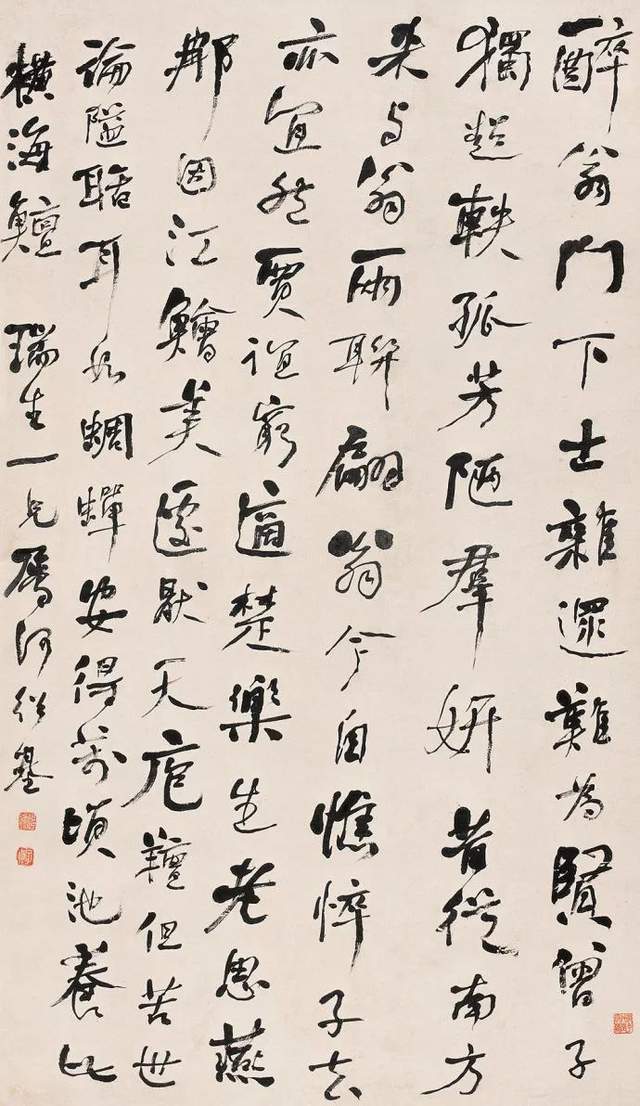 醉翁門下士雜遝難為賢曾子
獨超軼孤芳陋羣妍昔從南方
來與翁兩聯翩翁今自憔悴子去
亦宜然賈誼窮適楚樂生老思燕
那因江鱠美遽厭天庖羶但苦世
論隘聒耳如蜩蟬安得萬頃池養此
橫海鱣 瑞生一兄屬 何紹基